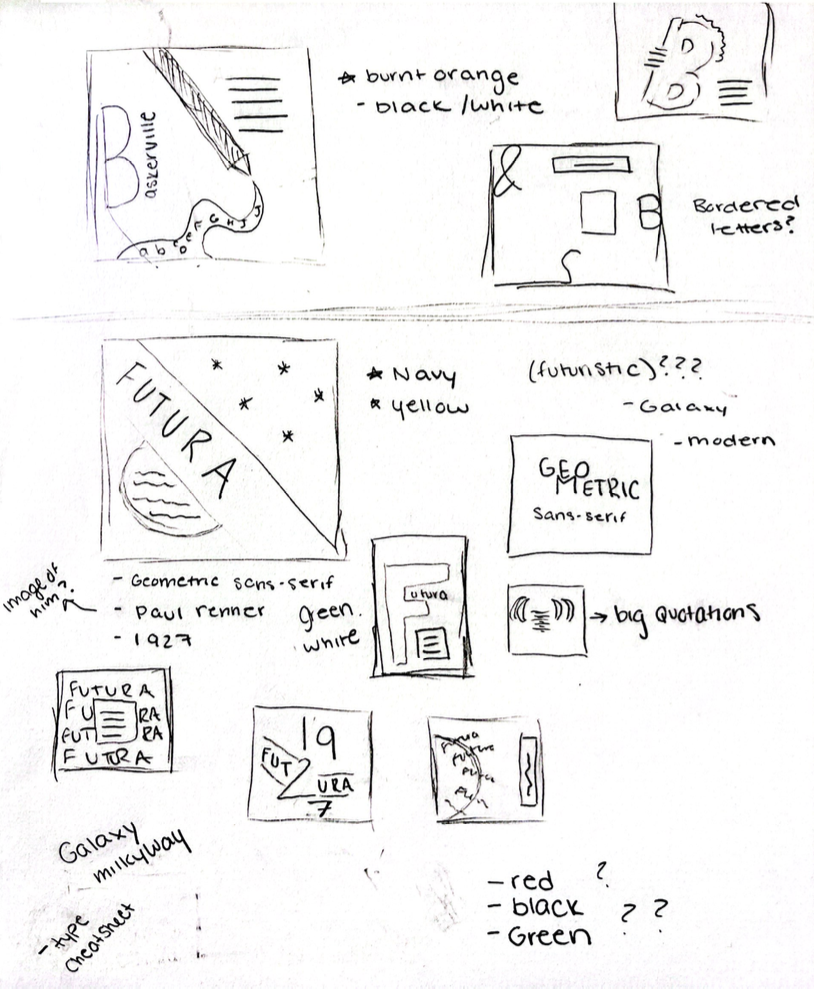 B
askerville
a b c D e F G H I J
* burnt orange
- black / white
B
&
B
S
Bordered
letters?
FUTURA
* Navy
* yellow
(futuristic)???
- Galaxy
- modern
GEO
METRIC
Sans-serif
- Geometric sans-serif
- Paul renner
- 1927
Image of
him?
green.
white
F
utura
→ big Quotations
FUTURA
FU RA
FUT RA
FUTURA
19
FUT
2
URA
7
Futura
Galaxy
milkyway
- type
cheatsheet
- red ?
- black ? ?
- Green